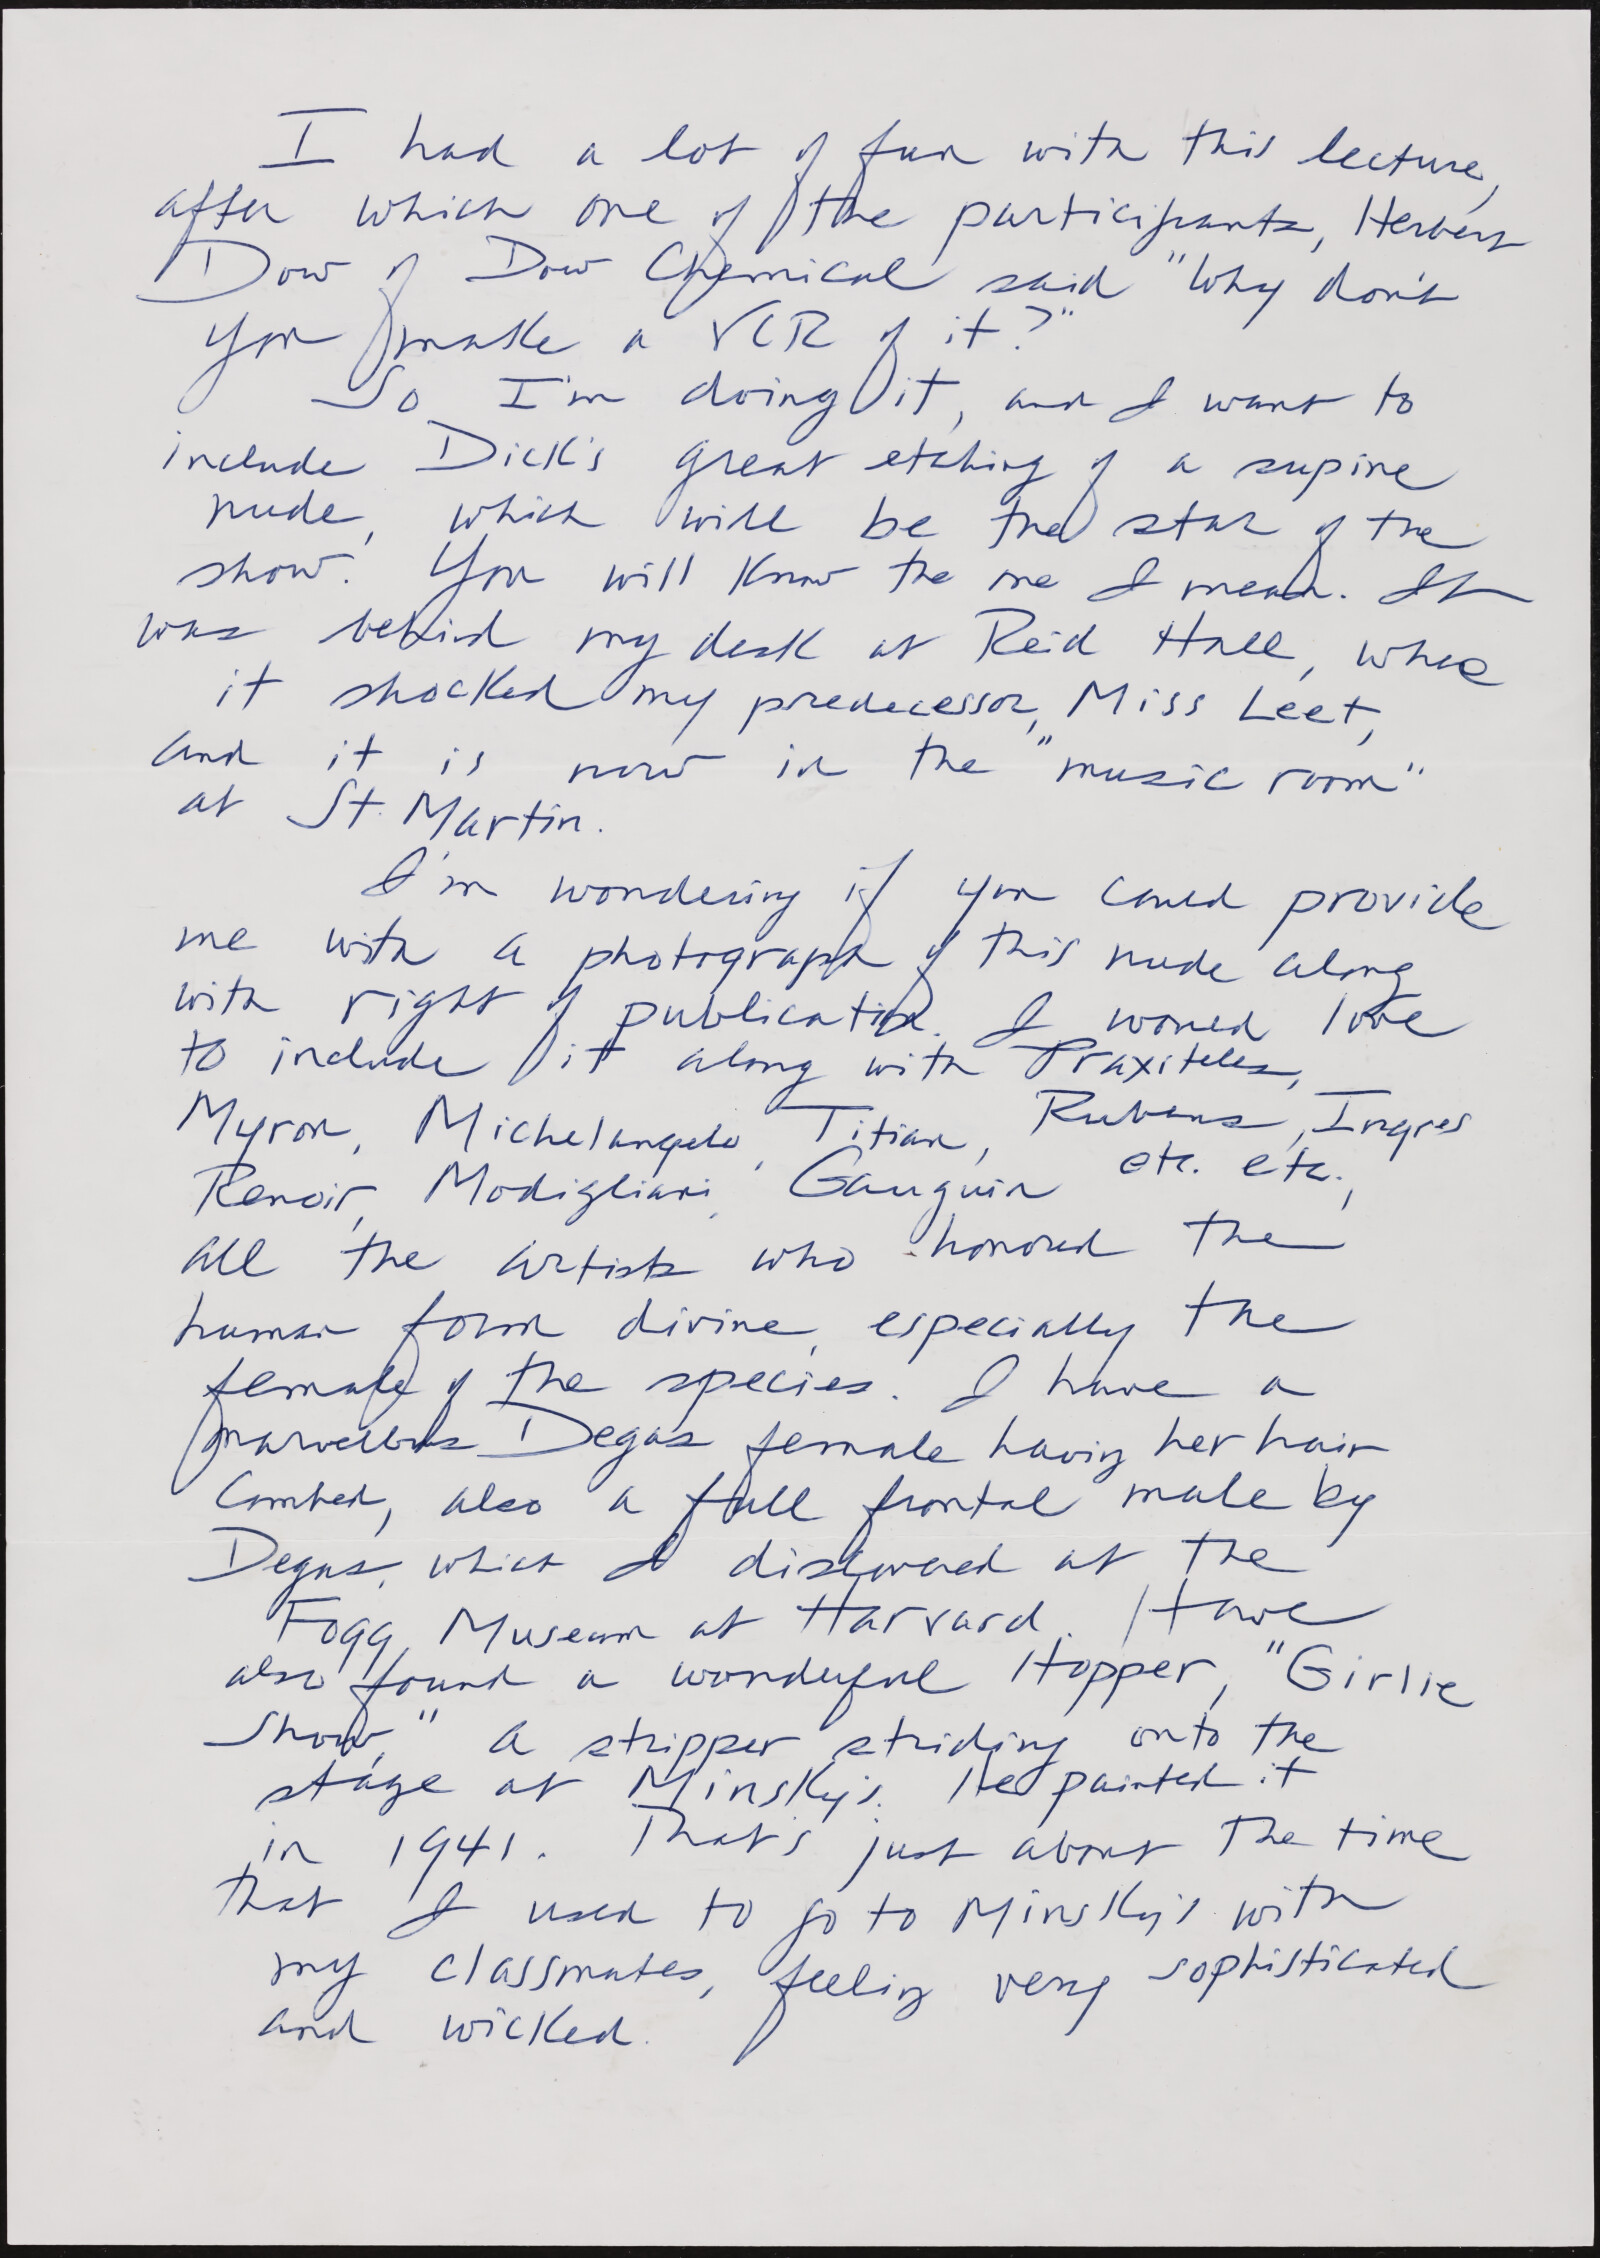 I had a lot of fun with this lecture,
after which one of the participants, Herbert
Dow of Dow Chemical said "Why don't
you make a VCR of it?"
So I'm doing it, and I want to
include Dick's great etching of a supine
nude, which will be the star of the
show. You will know the one I mean. It
was behind my desk at Reid Hall, where
it shocked my predecessor, Miss Leet,
and it is now in the "music room"
at St. Martin.
I'm wondering if you could provide
me with a photograph of this nude along
with right of publication. I would love
to include it along with Praxiteles,
Myron, Michelangelo, Titian, Rubens, Ingres
Renoir, Modigliani, Gauguin etc. etc.,
all the artists who honored the
human form divine, especially the
female of the species. I have a
marvellous Degas female having her hair
combed, also a full frontal male by
Degas, which I discovered at the
Fogg Museum at Harvard. Have
also found a wonderful Hopper, "Girlie
Show," a stripper striding onto the
stage at Minsky's. He painted it
in 1941. That's just about the time
that I used to go to Minsky's with
my classmates, feeling very sophisticated
and wicked.